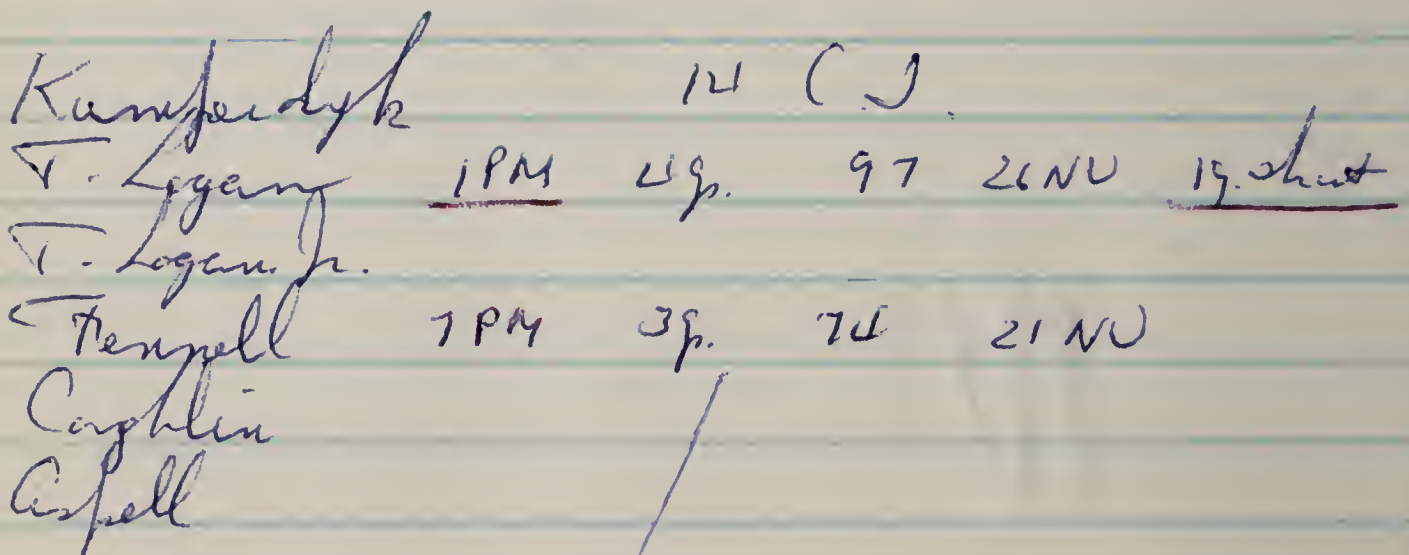 Kamperdyk 14 ( ).
T. Logan 1PM 4 gr. 97 26 NU 1 g. short
T. Logan Jr.
Fennell 7 PM 3 gr. 74 21 NU
Coughlin
Aspell